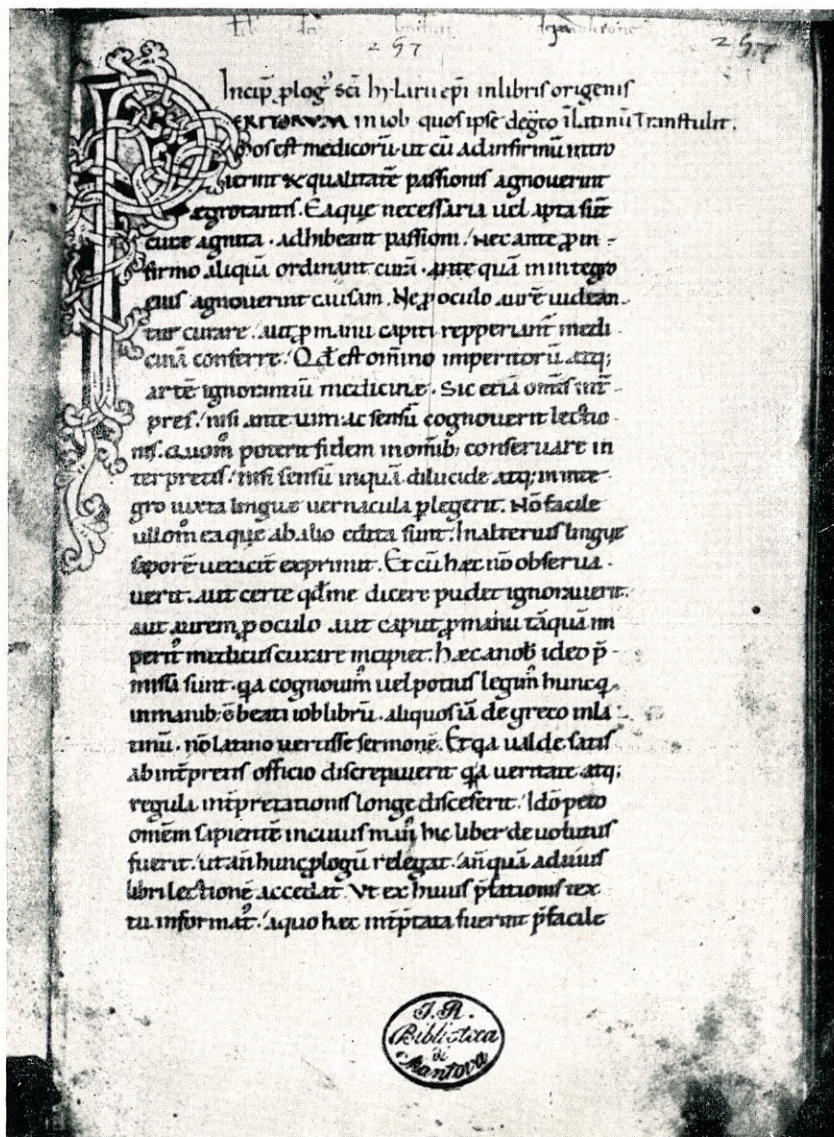 257 257
Incip̄ ꝓlogꝰ sc̄i hylarii ep̄i in libris origenis
PERITORVM in iob quos ipse de gr̄eco ī latinū transtulit.
mos est medicorū. ut cū ad infirmū intro
ierint & qualitatē passionis agnouerint
ęgrotantis. Eaque necessaria uel apta sūt
curę agnita. adhibeant passioni. Nec ante ꝓ in-
firmo aliquā ordinant curā. ante quā in integro
eius agnouerint causam. Ne ꝓ oculo aurē uidean-
tur curare. aut ꝓ manu capiti repperiant̄ medi-
cinā conferre. Qd̄ est om̄ino imperitorū atq;
artē ignorantiū medicinę. Sic etiā om̄is int̄-
pres. nisi ante uim ac sensū cognouerit lectio-
nis. quom̊ poterit fidem in om̄ib; conseruare in
terpretis. nisi sensū inquā dilucide atq; in inte-
gro iuxta linguę uernacula ꝑlegerit. Nō facile
ullom̊ ea que ab alio edita sunt. In alterius linguę
saporē ueraciť exprimit. Et cū hæc nō obserua-
uerit. aut certe qd̄ me dicere pudet ignorauerit.
aut aurem ꝓ oculo aut caput ꝓ manu tāquā im
peritꝰ medicus curare incipiet. hæc a nob̄ ideo p̄-
missa sunt. qa cognouimꝰ uel potius legimꝰ hunc q
in manib; ē beati iob librū. aliquos iā de greco in la-
tinū. nō latino uertisse sermonē. Et qa ualde satis
ab int̄pretis officio discrepauerit qa ueritate atq;
regula int̄pretationis longe discesserit. Idō peto
omēm sapientē in cuius man̄ hic liber deuolutus
fuerit. ut an̄ hunc ꝓlogū relegat. an̄ quā ad uius
libri lectionē accedat. Vt ex huius p̄fationis tex
tu informat̄. a quo hæc int̄p̄tata fuerint p̄facile
I. R.
Biblioteca
di
Mantova